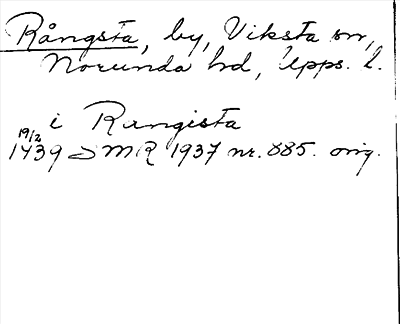 Rångsta, by, Viksta sn,
Norunda hd, Upps. l.
i Rangista
19/2
1439 SMR 1937 nr. 885. orig.